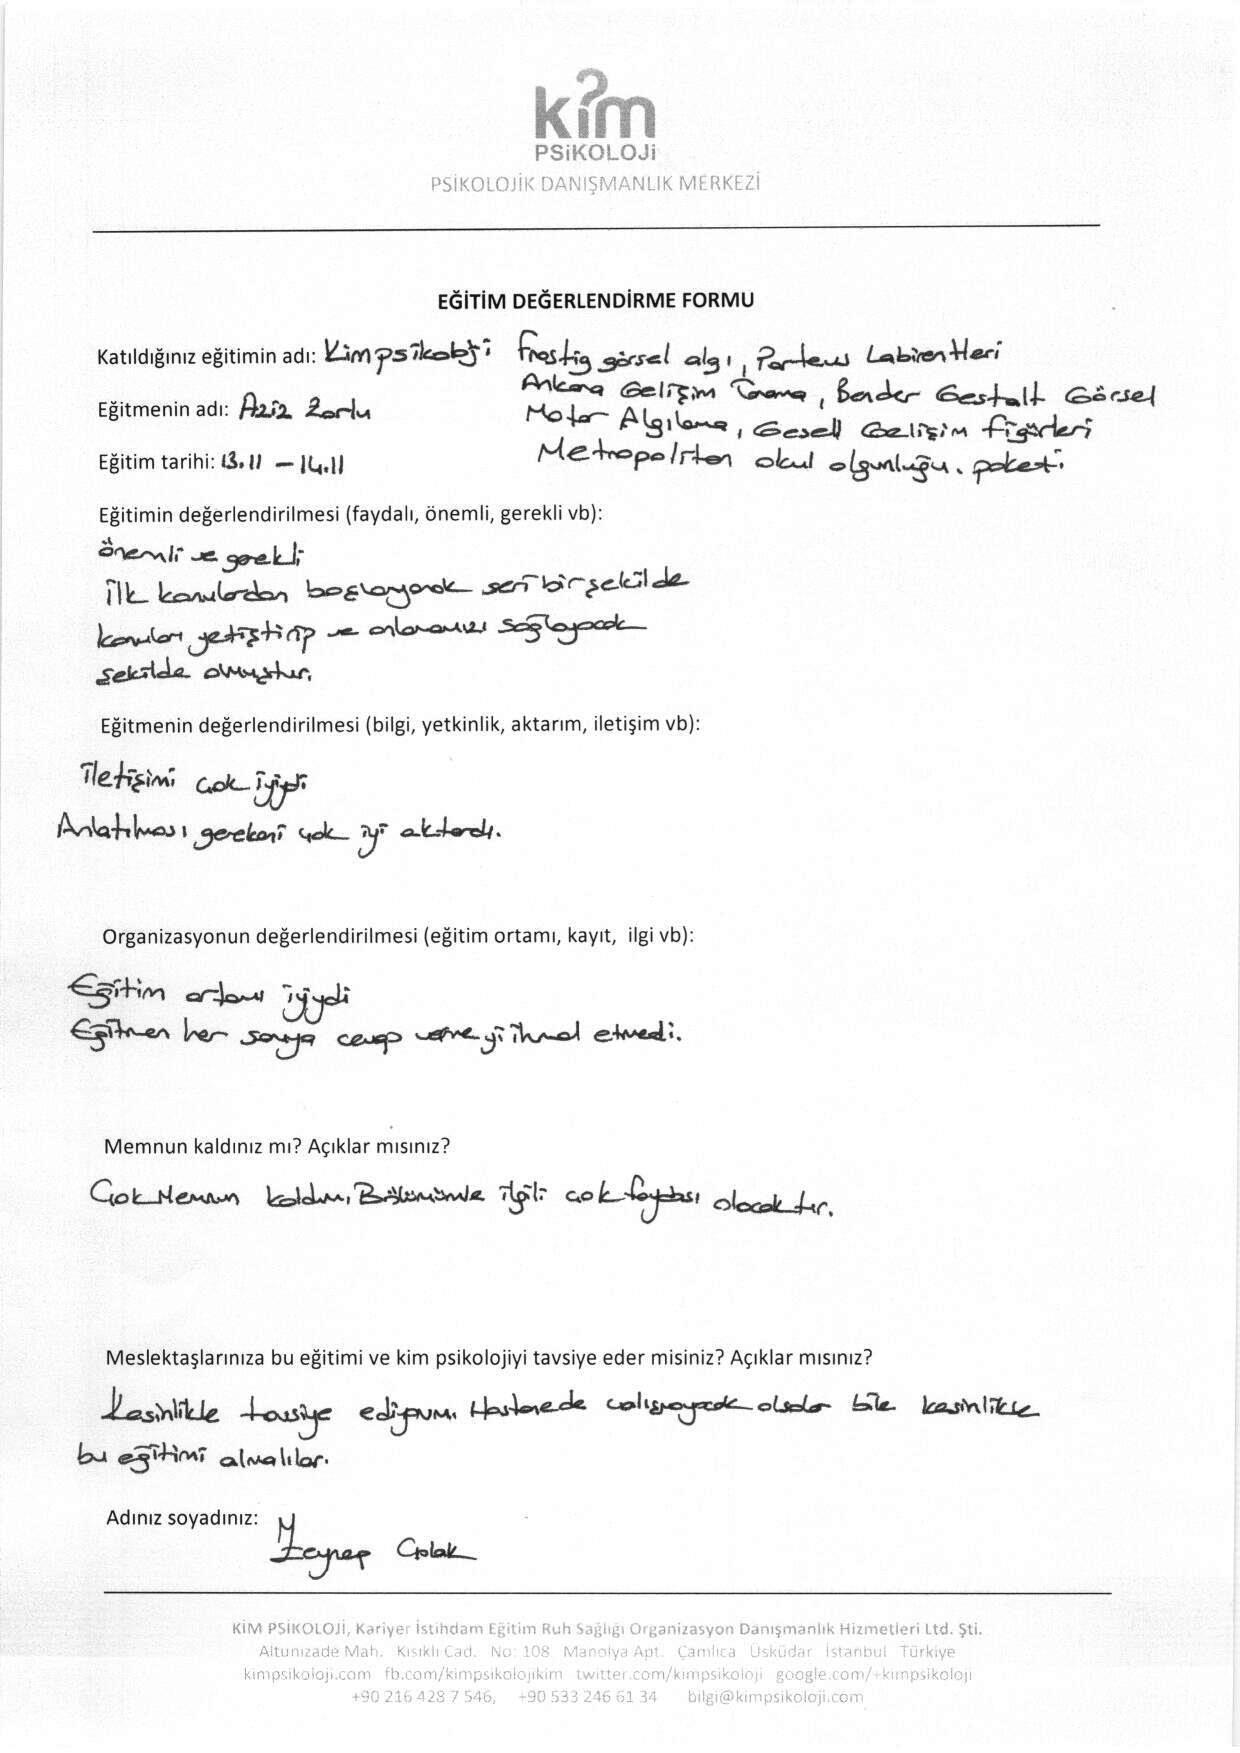 kim
PSiKOLOJi
PSİKOLOJİK DANIŞMANLIK MERKEZİ
EĞİTİM DEĞERLENDİRME FORMU
Katıldığınız eğitimin adı: Kimpsikoloji Frostig görsel algı, Porteus Labirentleri
Ankara Gelişim Tarama, Bender Gestalt Görsel
Eğitmenin adı: Aziz Zorlu
Motor Algılama, Gesell Gelişim figürleri
Eğitim tarihi: 13.11 - 14.11
Metropoliten okul olgunluğu. paketi
Eğitimin değerlendirilmesi (faydalı, önemli, gerekli vb):
önemli ve gerekli
ilk konulardan başlayarak seri bir şekilde
konuları yetiştirip ve anlamamızı sağlayacak
şekilde olmuştur.
Eğitmenin değerlendirilmesi (bilgi, yetkinlik, aktarım, iletişim vb):
iletişimi çok iyiydi
Anlatılması gerekeni çok iyi aktardı.
Organizasyonun değerlendirilmesi (eğitim ortamı, kayıt, ilgi vb):
Eğitim ortamı iyiydi
Eğitmen her soruya cevap vermeyi ihmal etmedi.
Memnun kaldınız mı? Açıklar mısınız?
Çok Memnun kaldım, Bölümümle ilgili çok faydası olacaktır.
Meslektaşlarınıza bu eğitimi ve kim psikolojiyi tavsiye eder misiniz? Açıklar mısınız?
Kesinlikle tavsiye ediyorum. Hastanede çalışmayacak olsalar bile kesinlikle
bu eğitimi almalılar.
Adınız soyadınız:
Zeynep Çolak
KİM PSİKOLOJİ, Kariyer İstihdam Eğitim Ruh Sağlığı Organizasyon Danışmanlık Hizmetleri Ltd. Şti.
Altunizade Mah. Kısıklı Cad. No: 108 Manolya Apt. Çamlıca Üsküdar İstanbul Türkiye
kimpsikoloji.com fb.com/kimpsikolojikim twitter.com/kimpsikoloji google.com/+kimpsikoloji
+90 216 428 7 546, +90 533 246 61 34 bilgi@kimpsikoloji.com